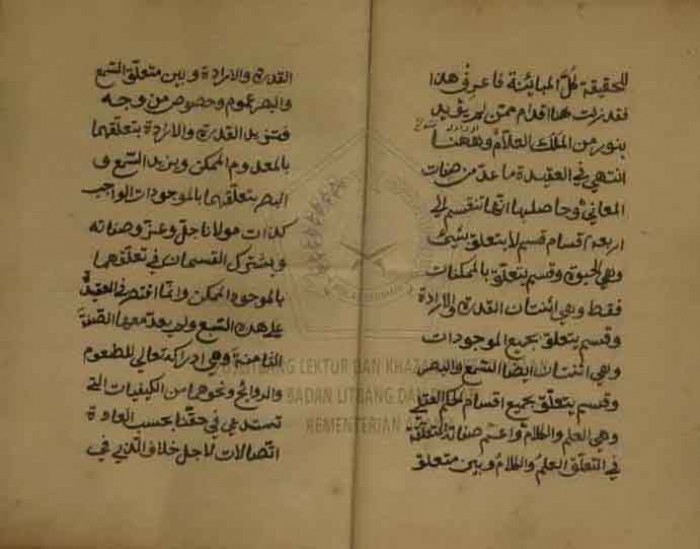 للحقيقة كلّ المباينة فاعرف هذا
فقد زلت هنا اقدام ممّن لم يؤيد
بنور من الملك العلاّم وههنا
انتهي في العقيدة ما عدّ من صفات
المعاني وحاصلها انها تنقسم الي
اربعة اقسام قسم لا يتعلق بشيئ
وهي الحيوة وقسم يتعلق بالممكنات
فقط وهي اثنتان القدرة والارادة
وقسم يتعلق بجميع الموجودات
وهي اثنتان ايضا السّمع والبصر
وقسم يتعلّق بجميع اقسام الحكم العقلي
وهي العلم والكلام واعمّ صفات المتعلقة
في التعلّق العلم والكلام وبين متعلق
القدرة والارادة وبين متعلّق السّمع
والبصر عموم وخصوص من وجه
فتزيد القدرة والارادة بتعلّقهما
بالمعدوم الممكن ويزيد السّمع و
البصر بتعلّقهما بالموجودات الواجب
كذات مولانا جلّ وعزّ وصفاته
ويشترك القسمان في تعلّقهما
بالموجود الممكن وانّما اقتصر في العقيدة
علي هذه السّبع ولم يعدّ معها الصّفة
الثامنة وهي ادراكه تعالي للطعوم
والروائح ونحوهما من الكيفيات التي
تستدعي في حقّنا بحسب العادة
اتّصالات لاجل خلاف الذي في
PUSLITBANG LEKTUR DAN KHAZANAH
BADAN LITBANG DAN
KEMENTERIAN AGAMA